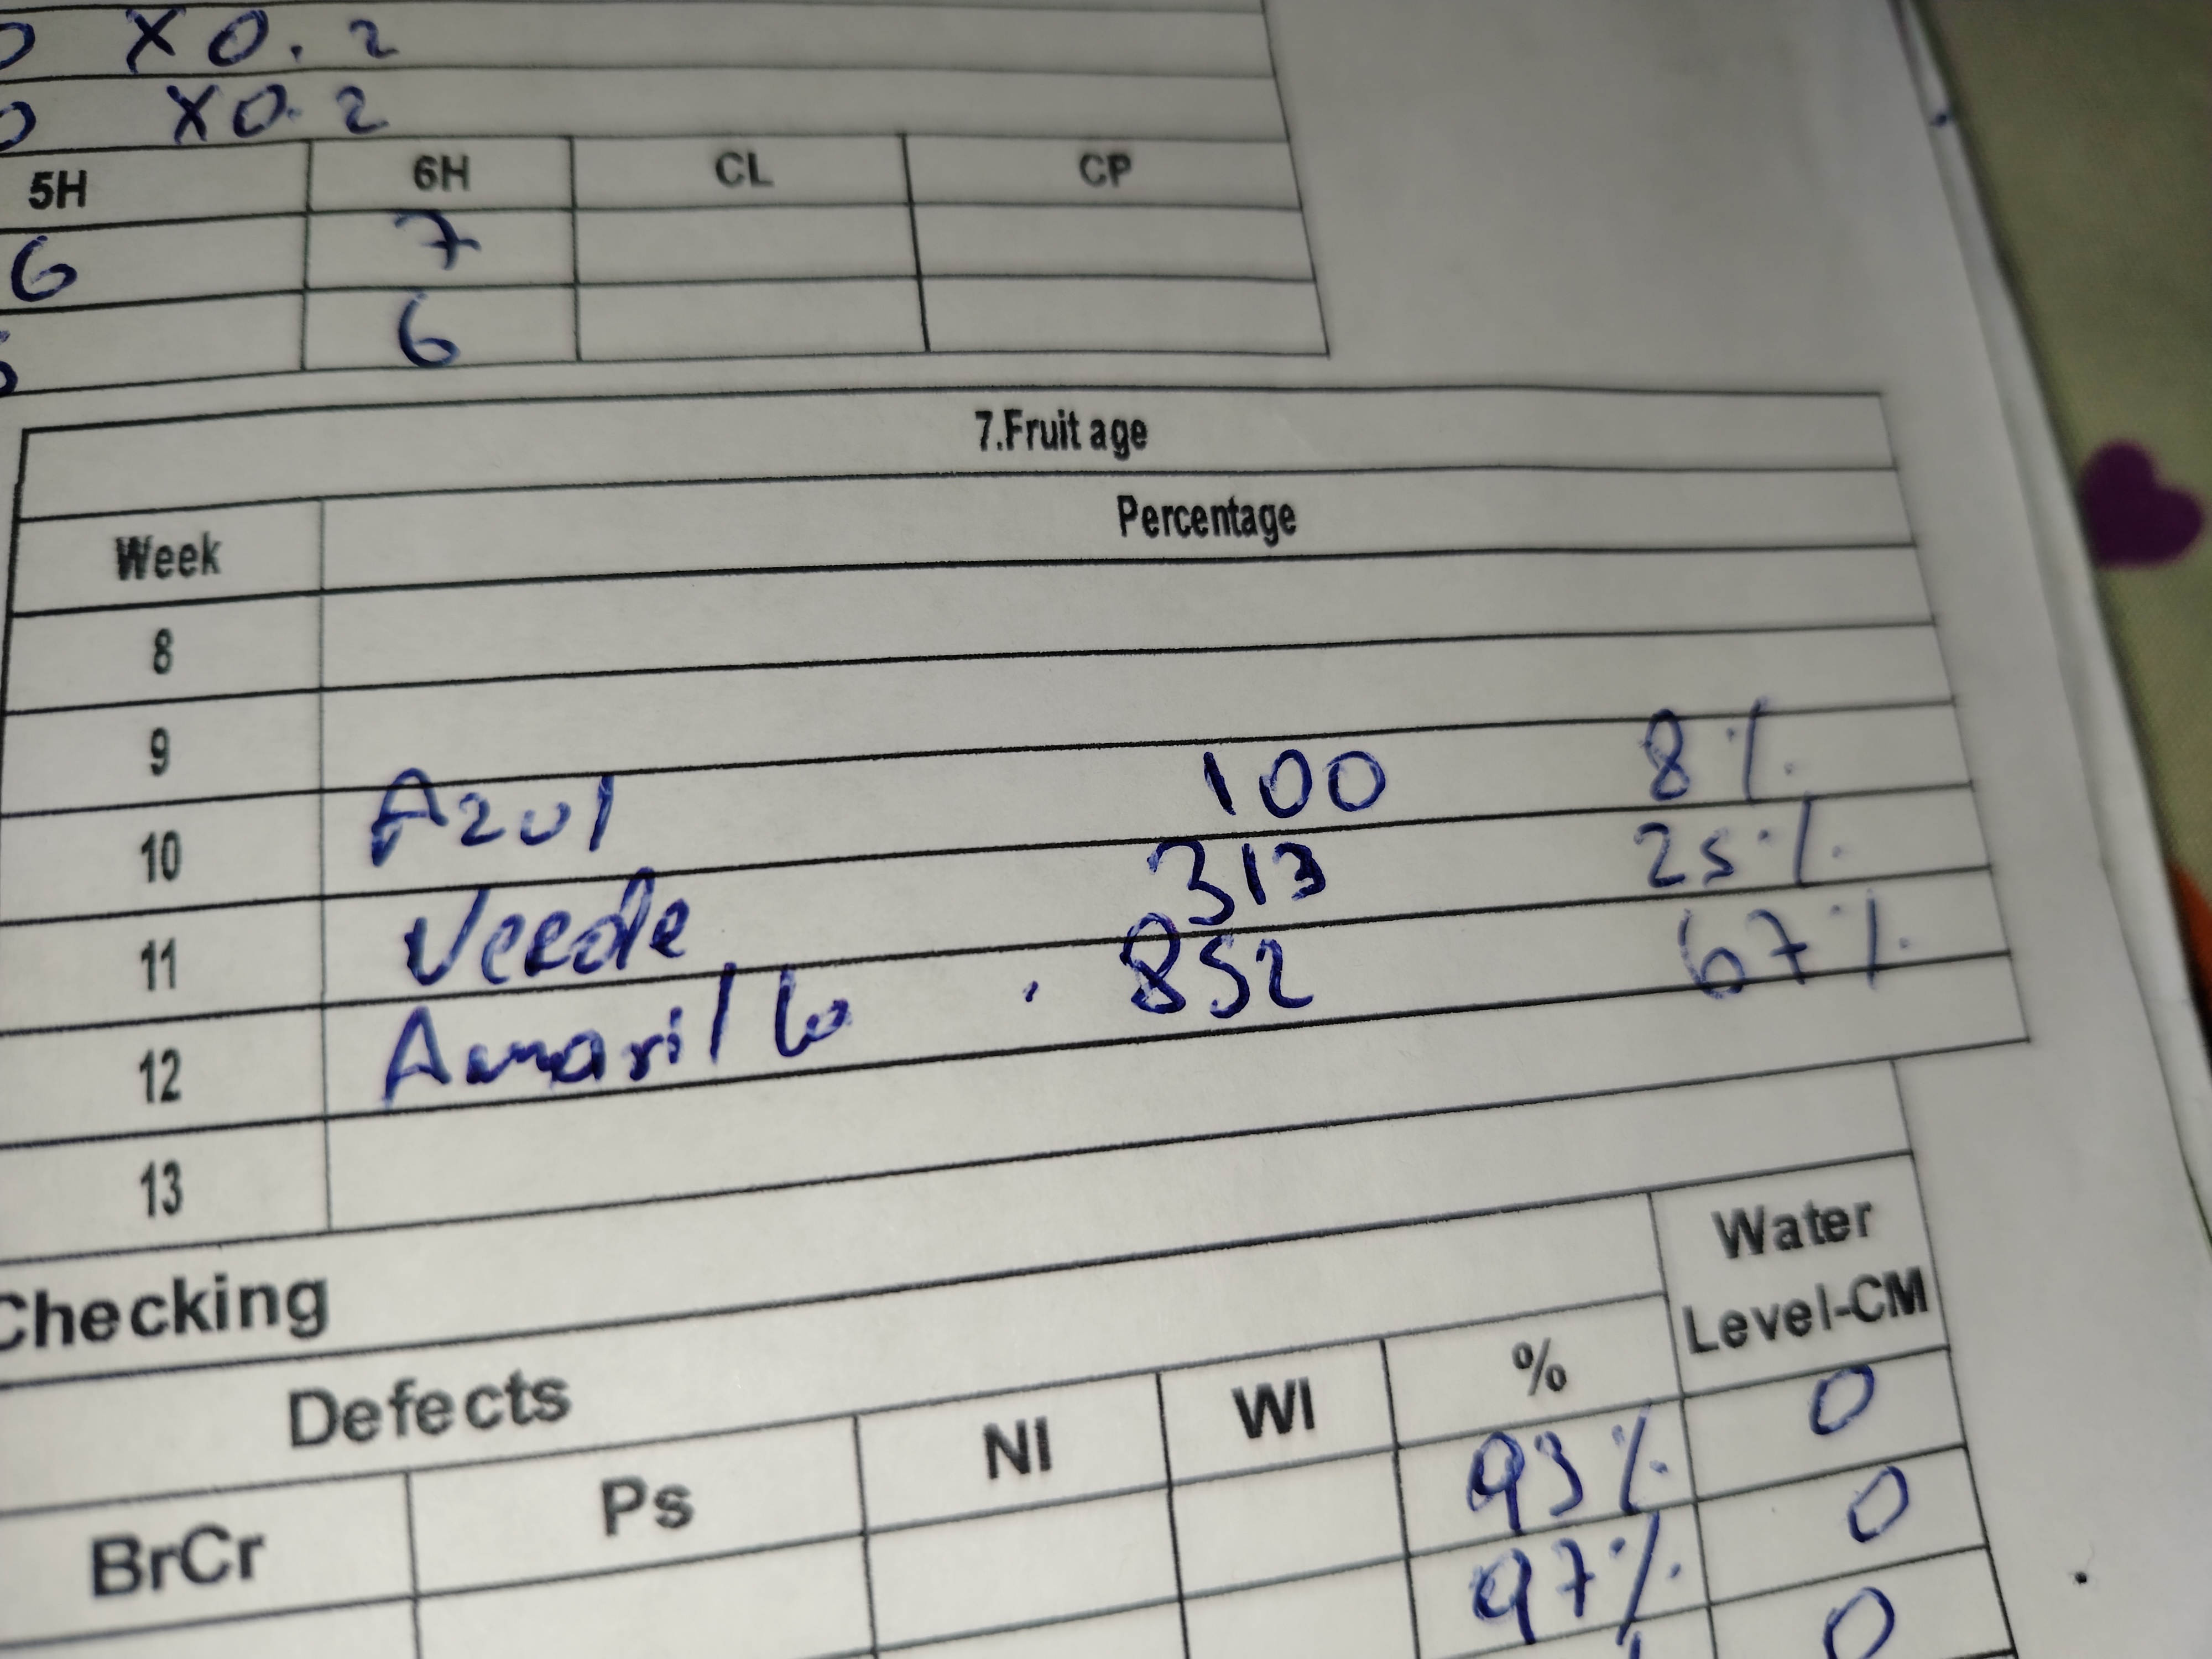 X0.2
X0.2
5H 6H CL CP
6 7
6
7.Fruit age
Week Percentage
8
9
10 Azul 100 8%
11 Verde 313 25%
12 Amarillo 852 67%
13
Checking
Defects % Water Level-CM
BrCr Ps NI WI 93% 0
97% 0
0